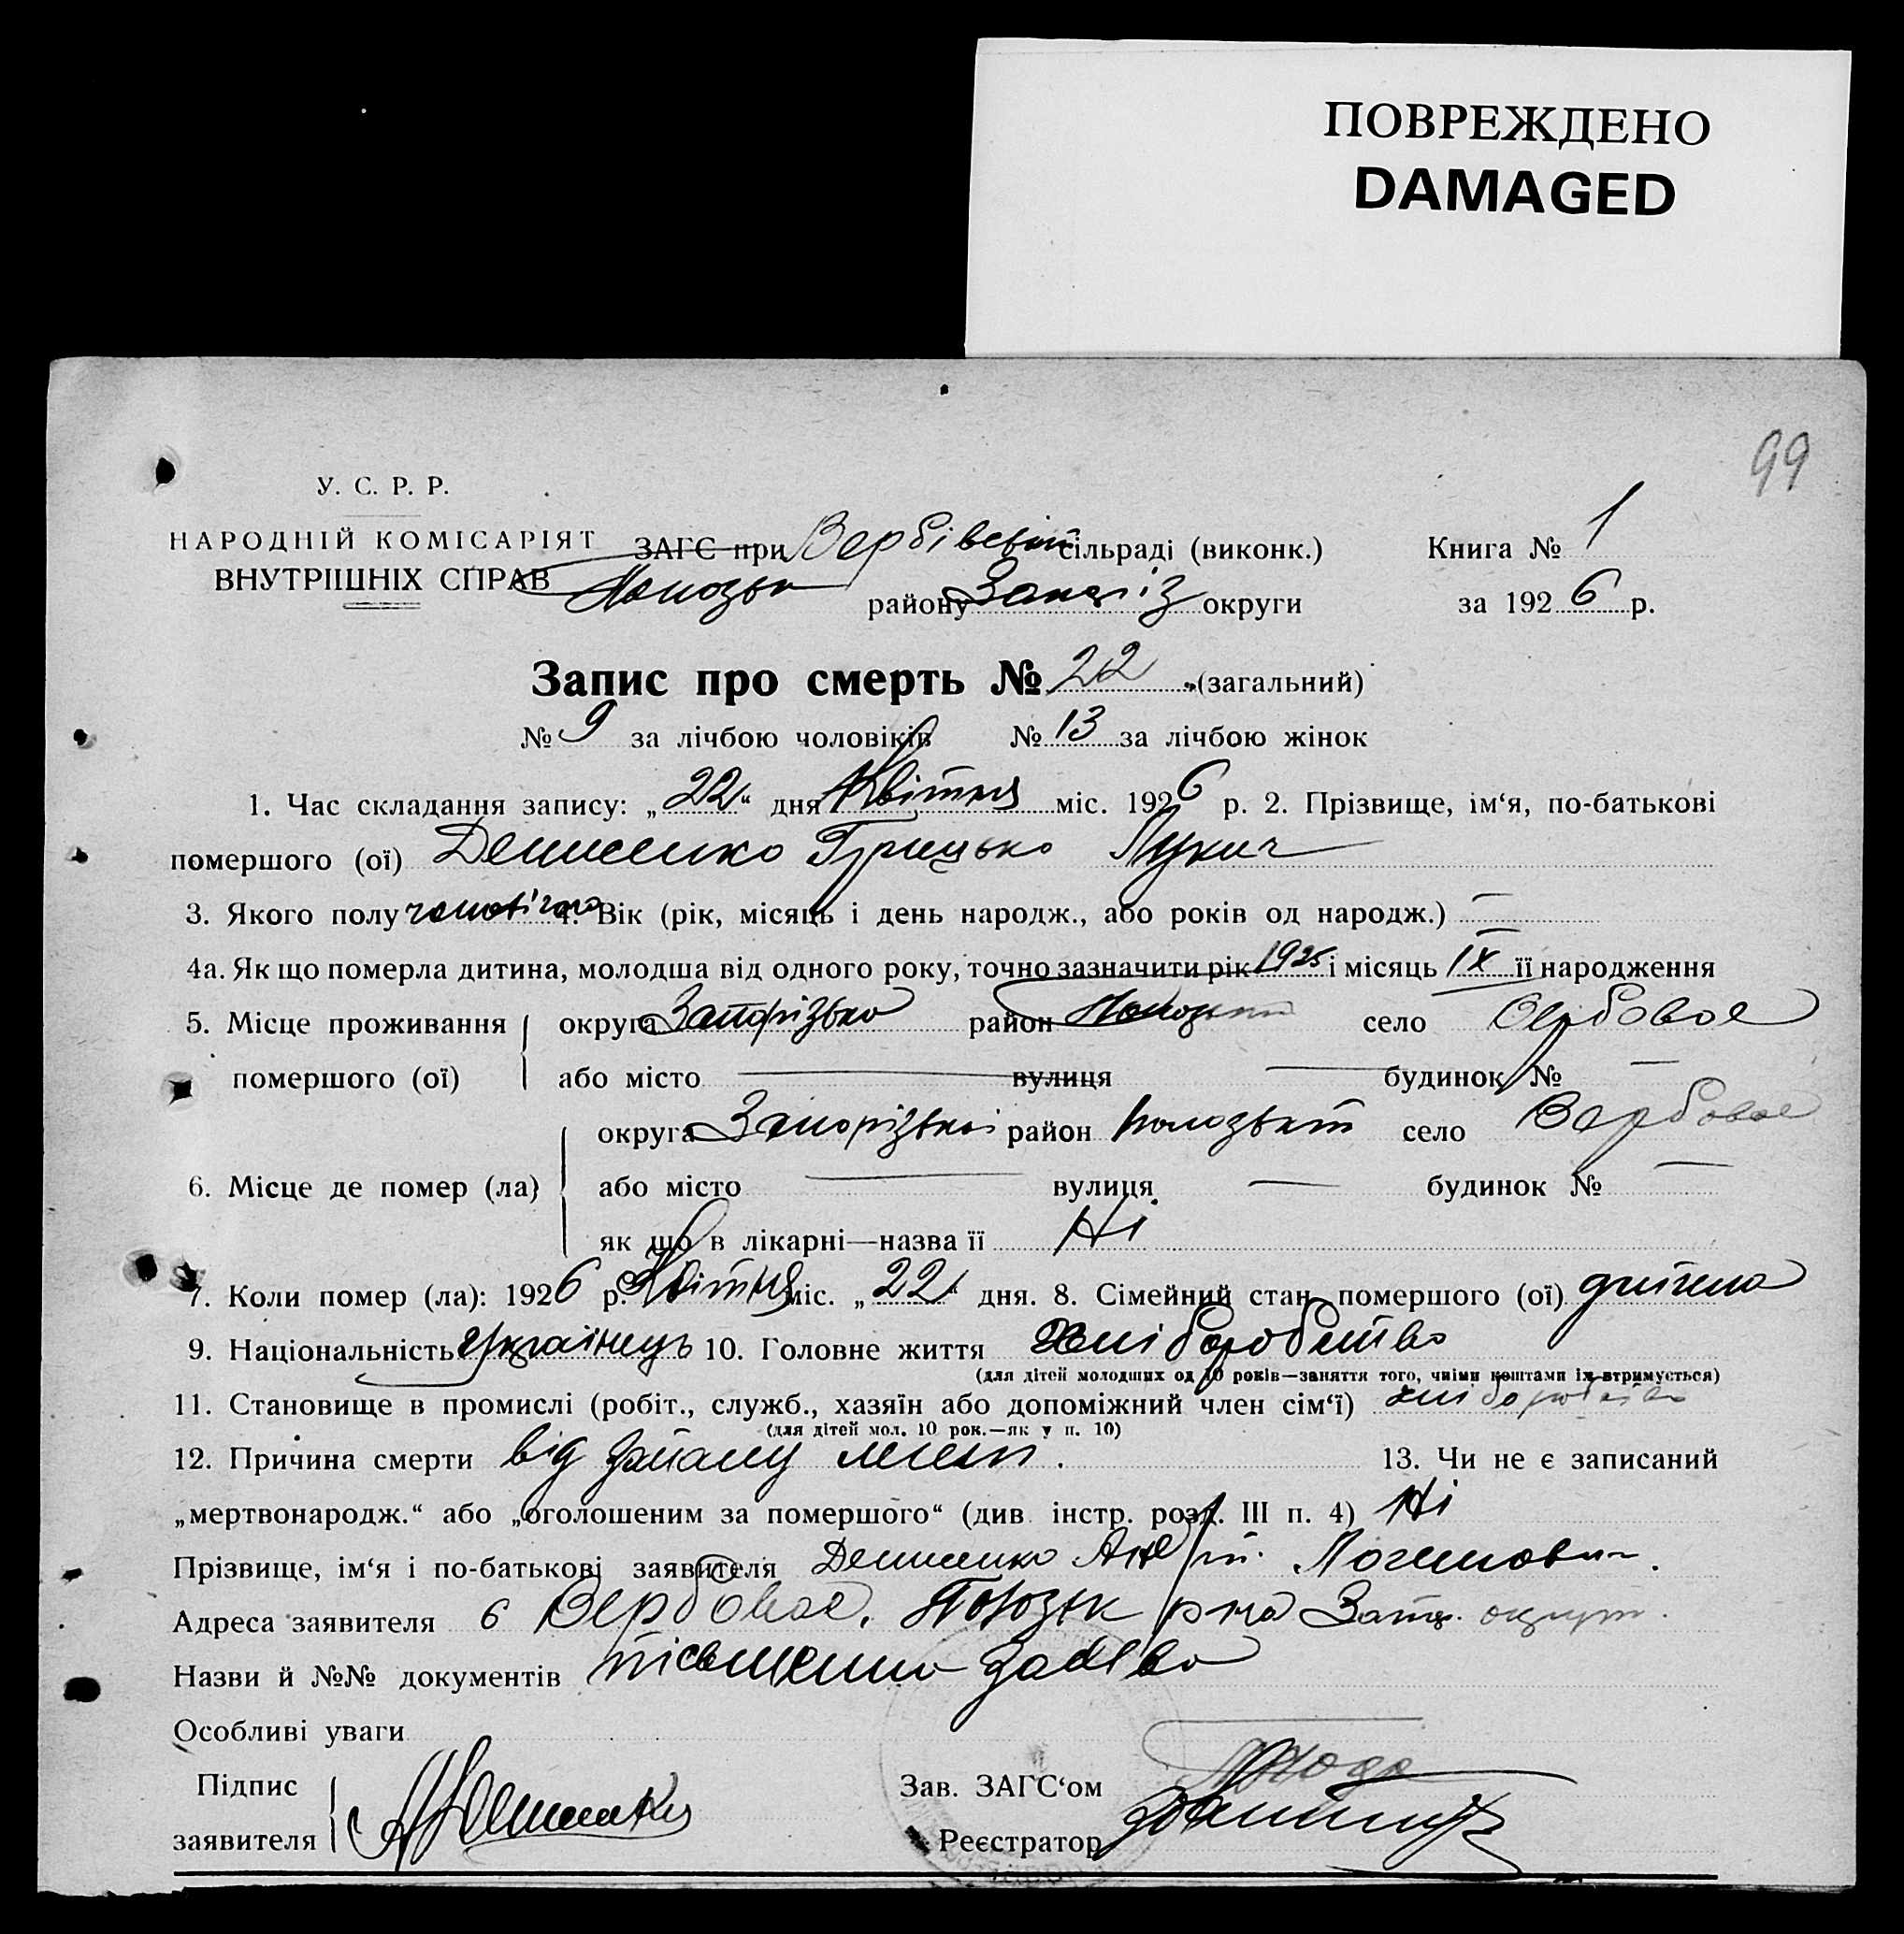 ПОВРЕЖДЕНО
DAMAGED
99
У. С. Р. Р.
НАРОДНІЙ КОМІСАРІЯТ
ВНУТРІШНІХ СПРАВ
ЗАГС при Вербівській сільраді (виконк.) Книга № 1
району округи за 1926 р.
Запис про смерть № 22 (загальний)
№ 9 за лічбою чоловіків № 13 за лічбою жінок
1. Час складання запису: „22“ дня Квітня міс. 1926 р. 2. Прізвище, ім‘я, по-батькові
помершого (ої) Денисенко Грицько Лукич
3. Якого полу чоловічого 4. Вік (рік, місяць і день народж., або років од народж.) —
4а. Як що померла дитина, молодша від одного року, точно зазначити рік 1925 і місяць IX її народження
5. Місце проживання округа Запорізька район село Вербовое
помершого (ої) або місто — вулиця — будинок № —
округа Запорізької район Пологський село Вербовое
6. Місце де помер (ла) або місто — вулиця — будинок № —
як що в лікарні—назва її Ні
7. Коли помер (ла): 1926 р. Квітня міс. „22“ дня. 8. Сімейний стан помершого (ої) дитина
9. Національність Українець 10. Головне життя Хліборобство
(для дітей молодших од 10 років—заняття того, чиїми коштами їх втримується)
11. Становище в промислі (робіт., служб., хазяїн або допоміжний член сім‘ї) хліборобство
(для дітей мол. 10 рок.—як у п. 10)
12. Причина смерти від 13. Чи не є записаний
„мертвонародж.“ або „оголошеним за помершого“ (див. інстр. розд. III п. 4) Ні
Прізвище, ім‘я і по-батькові заявителя Денисенко Андрій
Адреса заявителя с Вербовое, Пологськ р-на Запор. округи.
Назви й №№ документів пісьменна заява
Особливі уваги
Підпис
заявителя
Зав. ЗАГС‘ом
Реєстратор